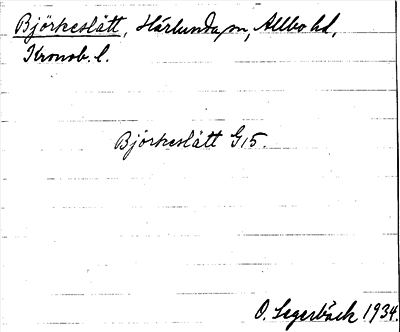 Björkeslätt, Härlunda sn, Allbo hd,
Kronob. l.
Björkeslätt G15.
O. Segerbäck 1934.